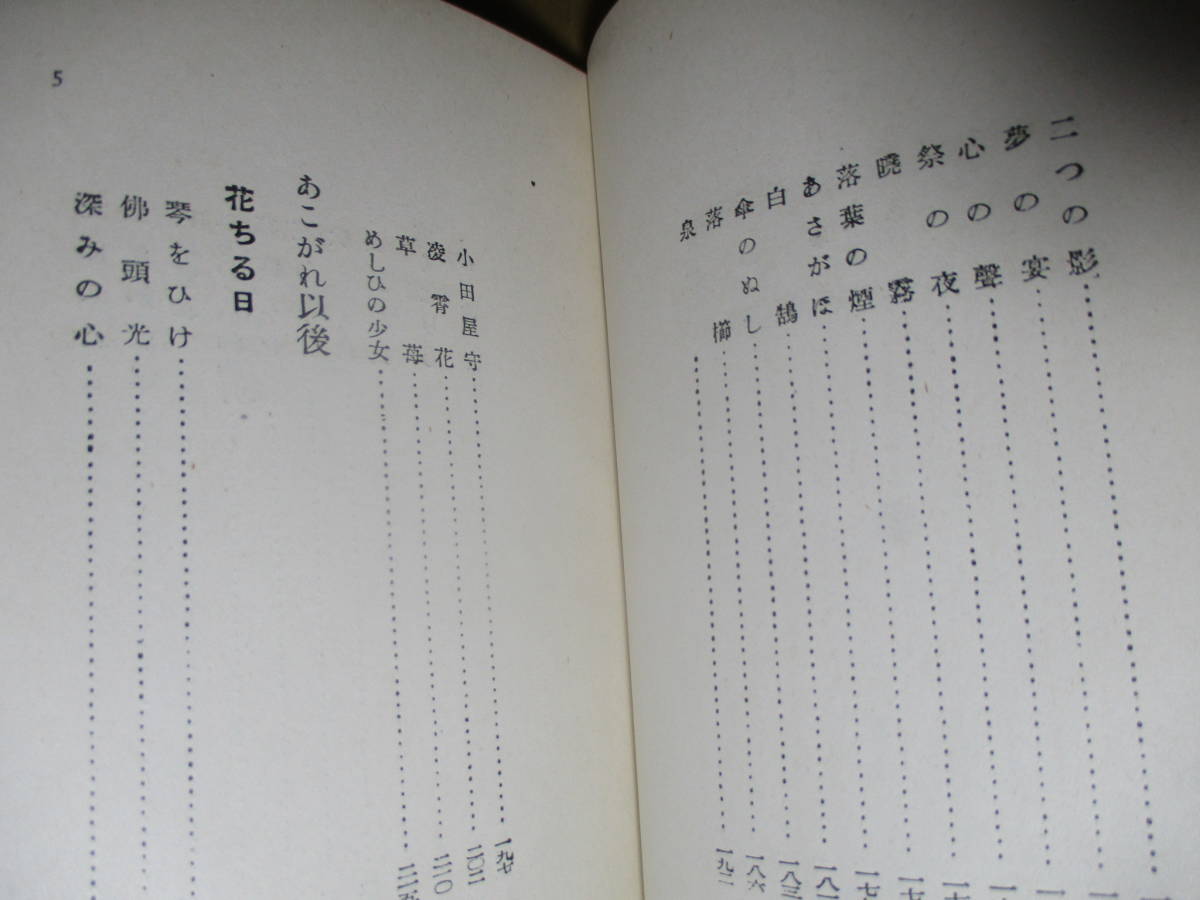 二つの影……一
夢の宴……一
心の聲……一
祭の夜……一七
曉霧……一七
落葉の煙……一七
あさがほ……一八一
白鵠……一八三
傘のぬし……一八六
落櫛……一九二
泉……
小田屋守……一九七
凌霄花……二〇二
草苺……二一〇
めしひの少女……二一五
あこがれ以後
花ちる日
琴をひけ……
佛頭光……
深みの心……
5